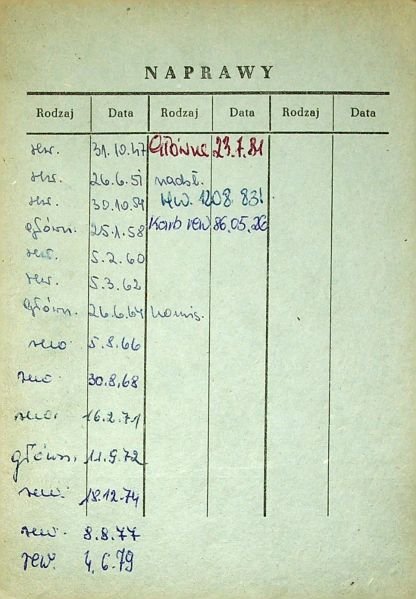 NAPRAWY
Rodzaj Data Rodzaj Data Rodzaj Data
rew. 31.10.47 Główna 23.7.81
rew. 26.6.51 nadzł.
rew. 30.10.54 rew. 1208 83!
główn. 25.1.58 Karb rew 86.05.26
rew. 5.2.60
rew. 5.3.62
główn. 26.6.64 komis.
rew 5.8.66
rew. 30.8.68
rew. 16.2.71
główn. 11.9.72
rew. 18.12.74
rew. 8.8.77
rew. 4.6.79